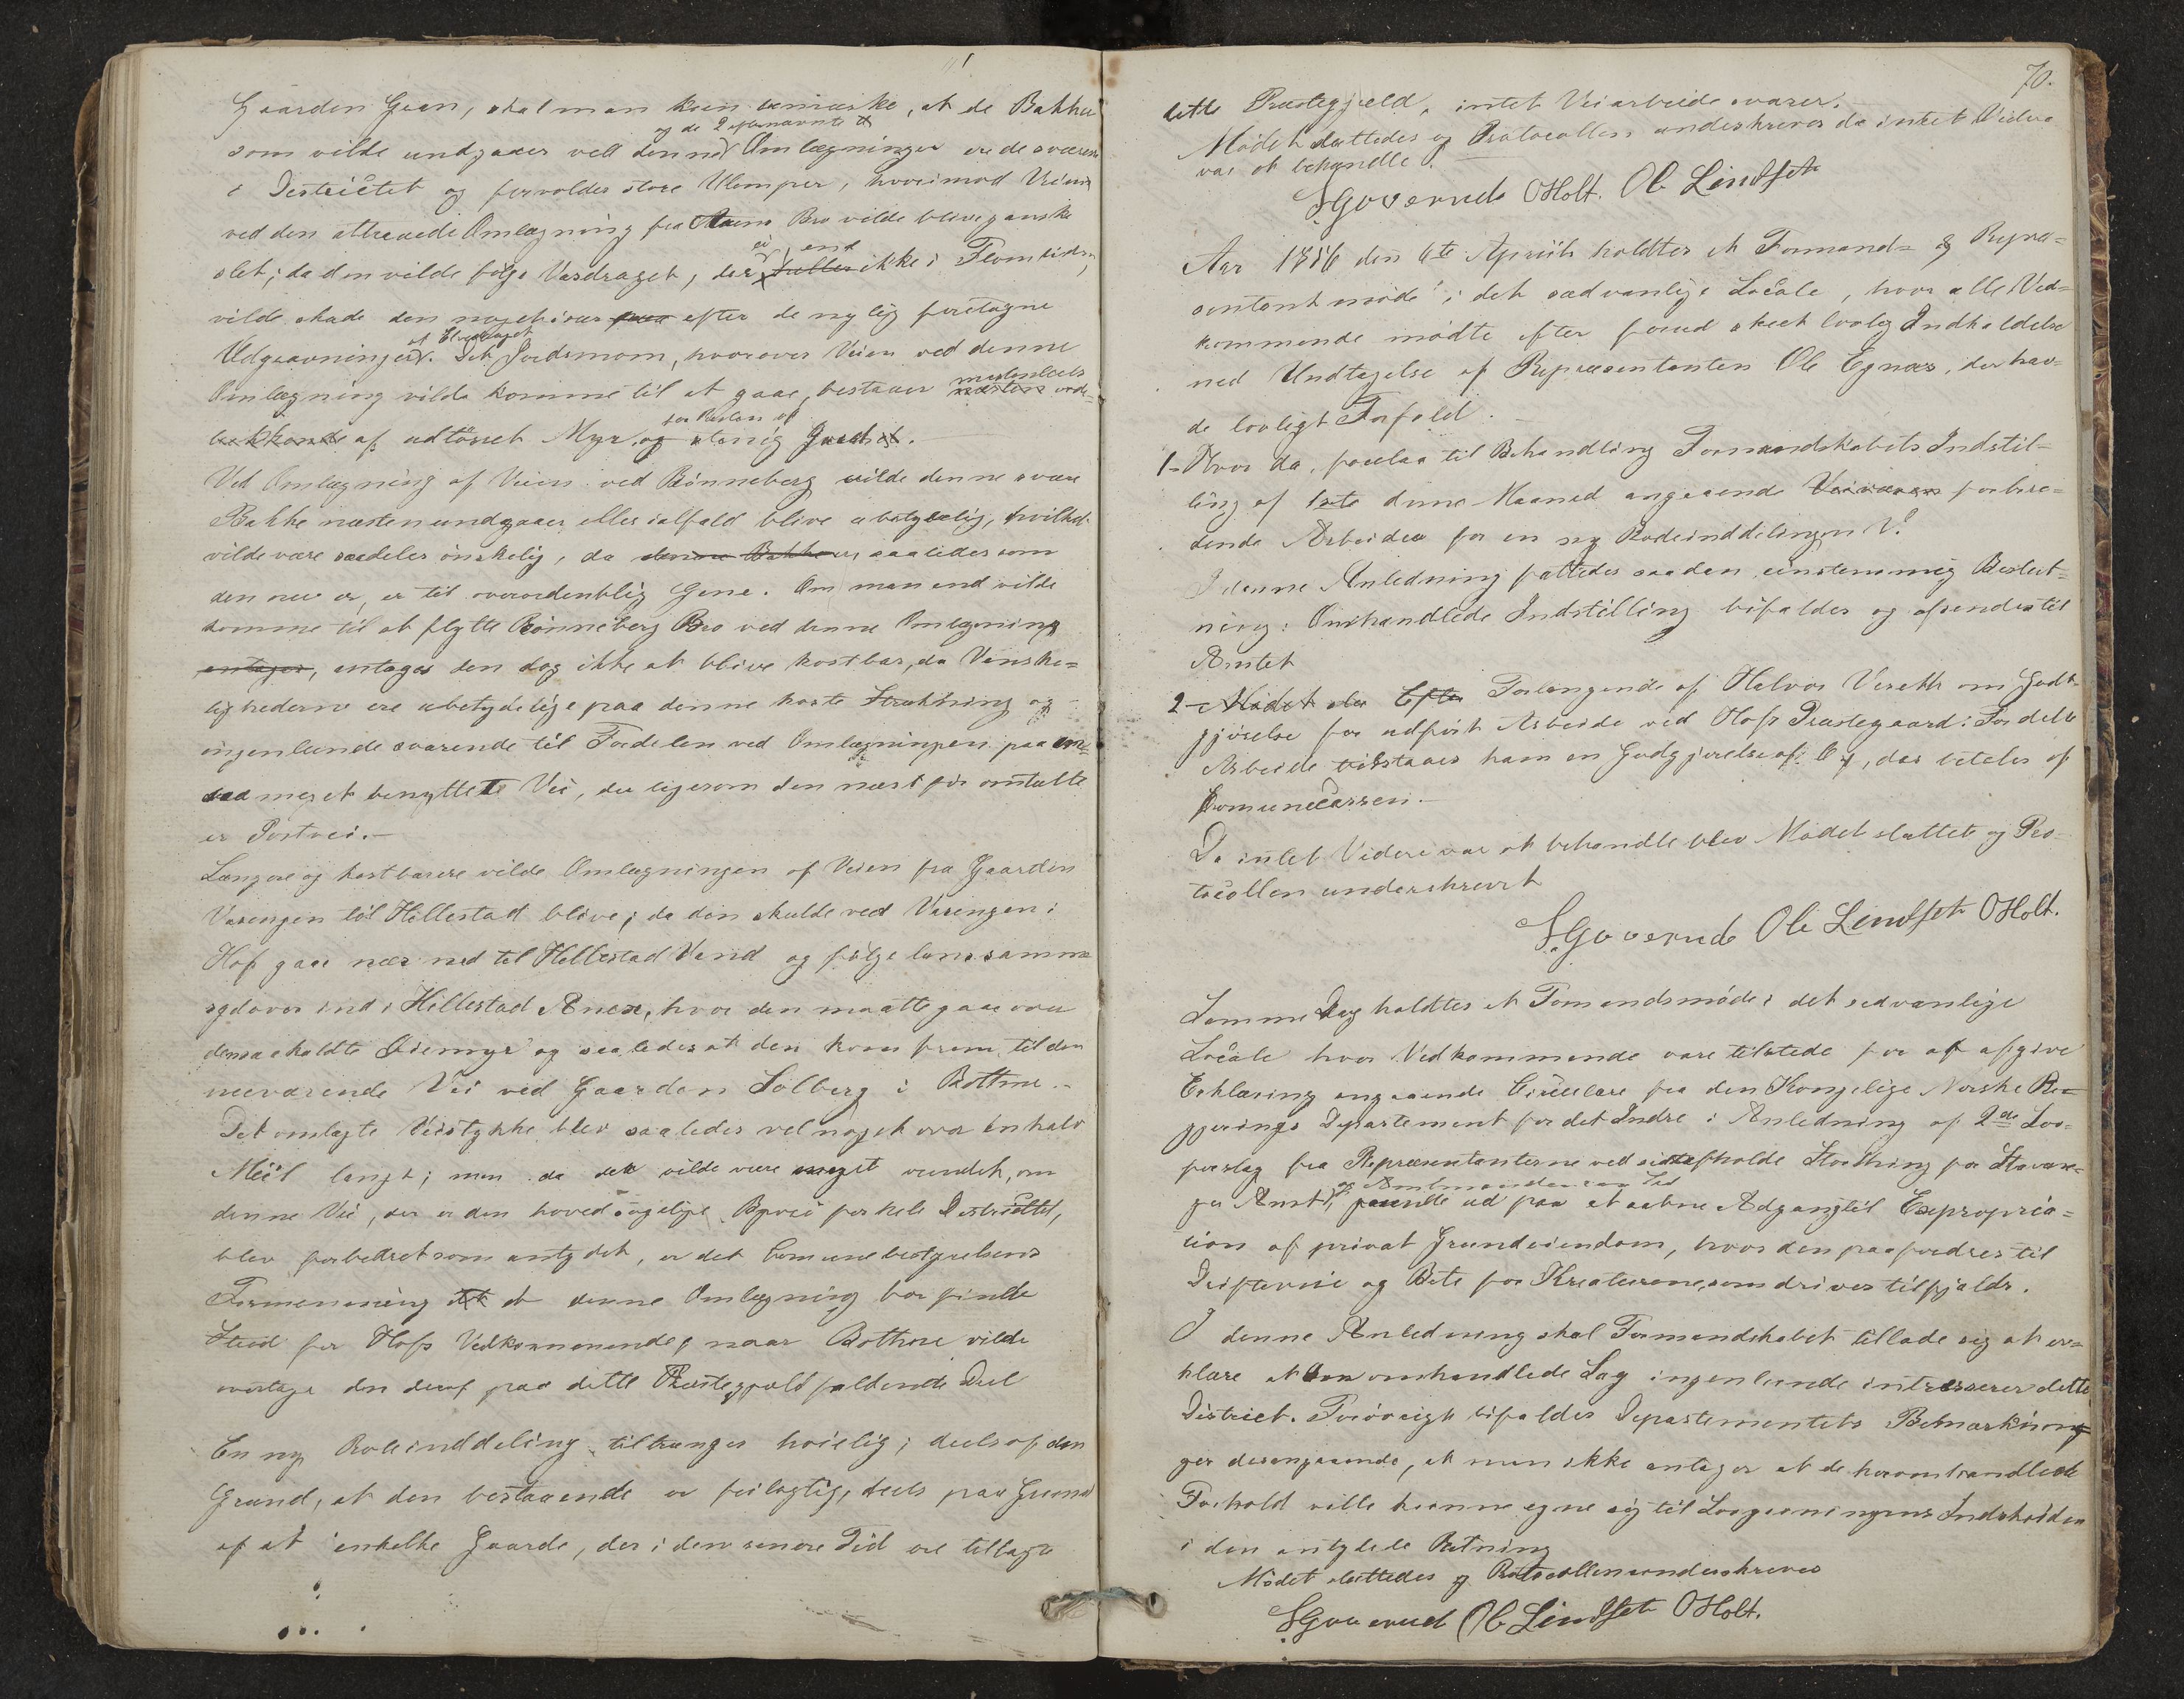 Gaarden Grøn, skal man kun bemærke, at de Bakker
og de 2 efternævnte
som vilde undgaaes ved denne Omlægninger ere de sværeste
i Districtet og forvolder store Ulemper, hvorimod Veien
ved den attraaede Omlægning fra Bro vilde blive ganske
ei end
slet; da den vilde følge Vasdraget, der heller ikke i Flomtiden,
vilde skade den noget især efter de nylig foretagne
af Elvedraget
Udgravninger. Det Jordsmon, hvorover Veien ved denne
Omlægning vilde komme til at gaae, bestaaer næsten
for Resten af
af udtørret Myr og stenig Jord.
Ved Omlægning af Veien ved Rønneberg vilde denne svære
Bakke næsten undgaaes eller ialfald blive ubetydelig, hvilket
vilde være saadeles ønskelig, da denne Bakke saaledes som
den nu er, er til overordentlig Gene. Om man end vilde
komme til at flytte Rønneberg Bro ved denne Omlægning
antages, antages den dog ikke at blive kostbar, da Vanske=
lighederne ere ubetydelige paa denne korte Strækning og
ingenlunde svarende til Fordelen ved Omlægningen paa en
saa meget benyttet Vei, der ligesom den næst før omtalte
er Postvei.—
Længere og kostbarere vilde Omlægningen af Veien fra Gaarden
Vasengen til Hillestad blive; da den skulde ved Vasengen i
Hof gaae nær ned til Hillestad Vand og følge langs samme
ogdover ind i Hillestad Anex, hvor den maatte gaae over
densaakaldte Øiemyr og saaledes at den kom frem til den
nuværende Vei ved Gaarden Solberg i Bottne.—
Det omlagte Veistykke blev saaledes vel noget over en halv
Miil langt; men da det vilde være meget vundet, om
denne Vei, der er den hovedsagelige Byvei for hele Districtet,
blev forbedret som antydet, er det Comunebestyrelsens
Formening at denne Omlægning bør finde
Sted for Hofs Vedkommende, naar Bothne vilde
overtage den deraf paa dette Præstegjæld faldende Deel
En ny Rodeinddeling tiltrænges høielig; deels af den
Grund, at den bestaaende er feilagtig, deels paa Grund
af at enkelte Gaarde, der i den senere Tid ere tillagte
70.
dette Præstegjæld, intet Veiarbeide svarer.
Mødet sluttedes og Protocollen underskreves da intet Videre
var at behandle.
SGoverud OHolt. Ole Lindset
Aar 1856 den 6te Aprils holdtes et Formand= og Repræ=
sentantmøde i det sædvanlige Locale, hvor alle Ved=
kommende mødte efter forud skeet lovlig Indkaldelse
ned Undtagelse af Repræsentanten Ole Egnæs, der hav=
de lovligt Forfald.
1— Hvor da, forelaa til Behandling Formandskabets Indstil=
ling af 1ste dennes Maaned angaaende Veivæsen forbere=
dende Arbeider for en ny Rodeinddelingen V.
I denne Anledning fattedes saadan einstemmig Beslut=
ning: Omhandlede Indstilling bifaldes og afsendes til
Amtet
2— Mødet Efter Forlangende af Halvor Vereth om Godt=
gjørelse for udført Arbeide ved Hofs Præstegaard: For dette
Arbeide tilstaaes ham en Godgjørelse af , der betales af
Comunecassen.—
Da intet Videre var at behandle blev Mødet sluttet og Pro=
tocollen underskrevet
SGoverud Ole Lindset OHolt.
Samme Dag holdtes et Formandsmøde i det sedvanlige
Locale hvor Vedkommende vare tilstede for at afgive
Erklæring angaaende Circulære fra den Kongelige Norske Re=
gjerings Departement for det Indre i Anledning af 2de Lov=
forslag fra Repræsentanterne ved sidstafholdte Storthing for Stavan=
og Amtmanden
ger Amt, gaaende ud paa at aabne Adgang til Expropria=
tion af privat Grundeiendom, hvor den paafordres til
Driftevei og Bete for Kreaturene, som drives tilfjelds.
I denne Anledning skal Formandskabet tillade sig at er=
klære at den omhandlede Sag ingenlunde interesserer dette
District. Forøvrigt bifaldes Departementets Bemærknin=
ger desangaaende, at man ikke antager at de heromhandlede
Forhold ville kunne egne sig til Lovgivningens Indskriden
i den antydede Retning
Mødet sluttedes og Protocollen underskreves
SGoverud Ole Lindset OHolt.